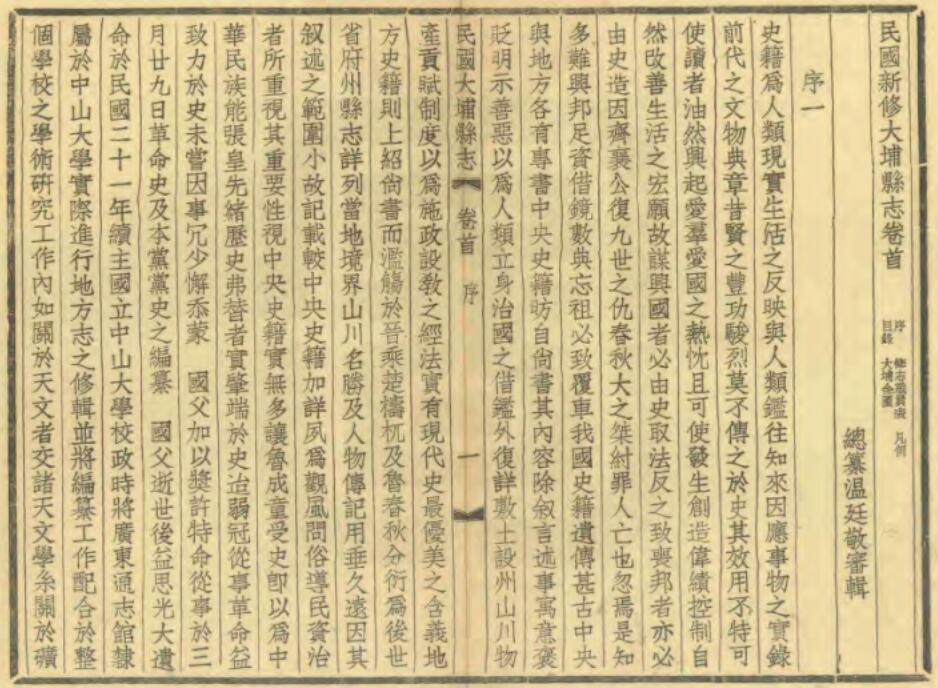 民國新修大埔縣志卷首
序 修志職員表 凡例
目錄 大埔全圖
總纂溫廷敬審輯
序一
史籍爲人類現實生活之反映與人類鑑往知來因應事物之實錄
前代之文物典章昔賢之豐功駿烈莫不傳之於史其效用不特可
使讀者油然興起愛羣愛國之熱忱且可使發生創造偉績控制自
然改善生活之宏願故謀興國者必由史取法反之致喪邦者亦必
由史造因齊襄公復九世之仇春秋大之桀紂罪人亡也忽焉是知
多難興邦足資借鏡數典忘祖必致覆車我國史籍遺傳甚古中央
與地方各有專書中央史籍昉自尙書其內容除叙言述事寓意褒
貶明示善惡以爲人類立身治國之借鑑外復詳敷土設州山川物
民國大埔縣志 卷首 序 一
產貢賦制度以爲施政設敎之經法實有現代史最優美之含義地
方史籍則上紹尙書而濫觴於晉乘楚檮杌及魯春秋分衍爲後世
省府州縣志詳列當地境界山川名勝及人物傳記用垂久遠因其
叙述之範圍小故記載較中央史籍加詳夙爲觀風問俗導民資治
者所重視其重要性視中央史籍實無多讓魯成童受史卽以爲中
華民族能張皇先緒歷史弗替者實肇端於史迨弱冠從事革命益
致力於史未嘗因事冗少懈忝蒙 國父加以獎許特命從事於三
月廿九日革命史及本黨黨史之編纂 國父逝世後益思光大遺
命於民國二十一年續主國立中山大學校政時將廣東通志館隸
屬於中山大學實際進行地方志之修輯並將編纂工作配合於整
個學校之學術硏究工作內如關於天文者交諸天文學系關於礦